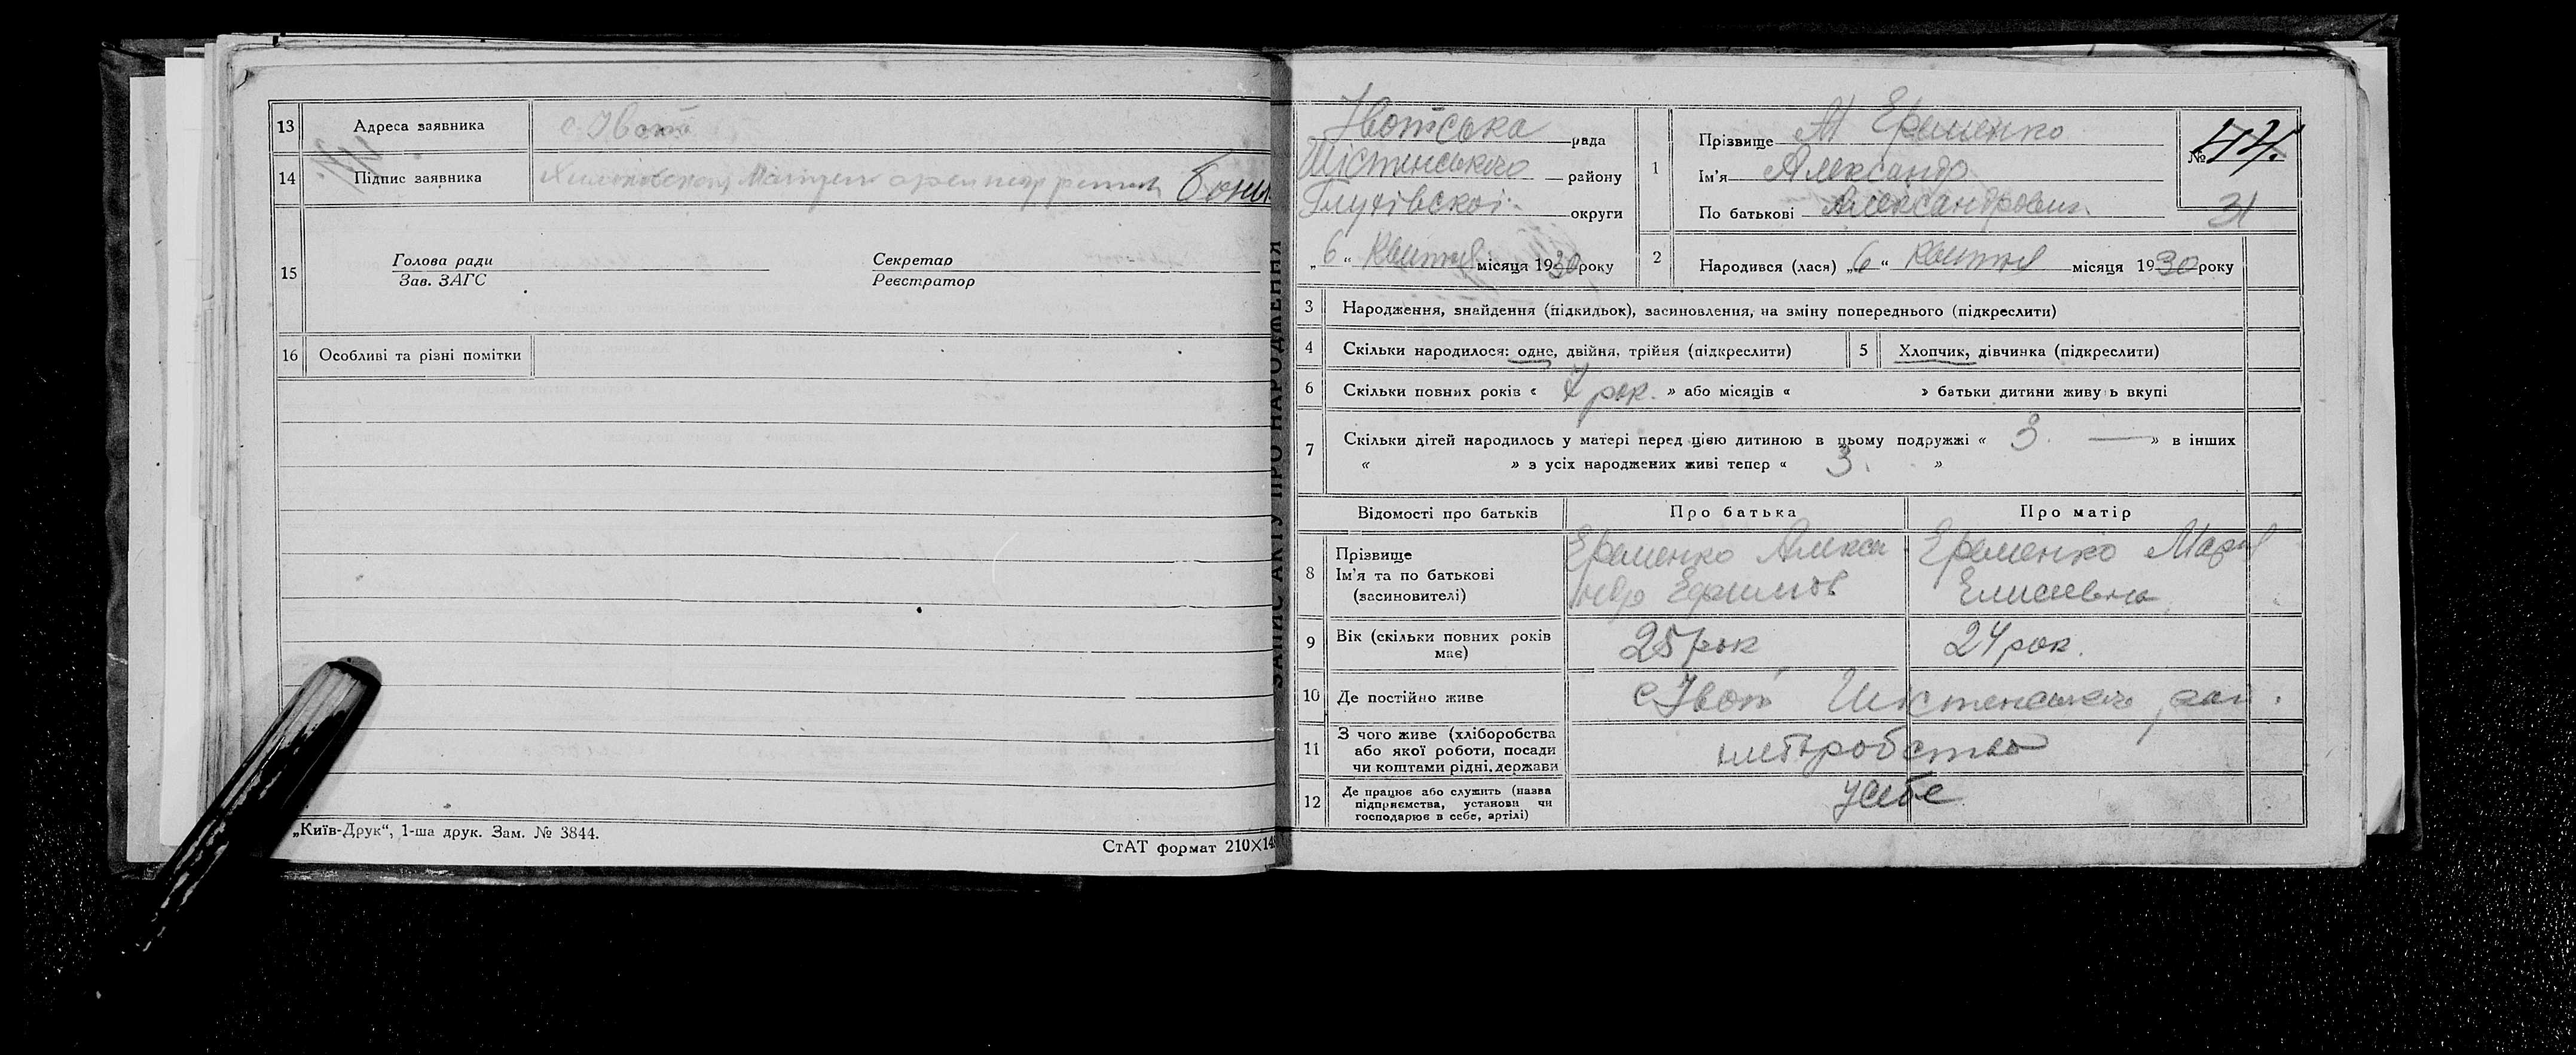 13 Адреса заявника с. Івот
14 Підпис заявника
15 Голова ради Секретар
Зав. ЗАГС Реєстратор
16 Особливі та різні помітки
„Київ-Друк“, 1-ша друк. Зам. № 3844.
СтАТ формат 210×14
ЗАПИС АКТУ ПРО НАРОДЖЕННЯ
Івотська рада
району
Глухівскоі округи
„6“ Квітня місяця 1930 року
1 Прізвище М Еременко
Ім'я Александр
По батькові Александрович
№ 44.
31
2 Народився (лася) „6“ Квітня місяця 1930 року
3 Народження, знайдення (підкидьок), засиновлення, на зміну попереднього (підкреслити)
4 Скільки народилося: одне, двійня, трійня (підкреслити) 5 Хлопчик, дівчинка (підкреслити)
6 Скільки повних років « 7 рок. » або місяців « » батьки дитини живуть вкупі
7 Скільки дітей народилось у матері перед цією дитиною в цьому подружжі « 3. — » в інших
« » з усіх народжених живі тепер « 3. »
Відомості про батьків Про батька Про матір
8 Прізвище Еременко Алекса Еременко Мария
Ім'я та по батькові
(засиновителі) ндр Ефимов Елисеевна
9 Вік (скільки повних років має) 25 рок 24 рок.
10 Де постійно живе с. Івот
11 З чого живе (хліборобства
або якої роботи, посади
чи коштами рідні, держави
12 Де працює або служить (назва
підприємства, установи чи
господарює в себе, артілі) усебе